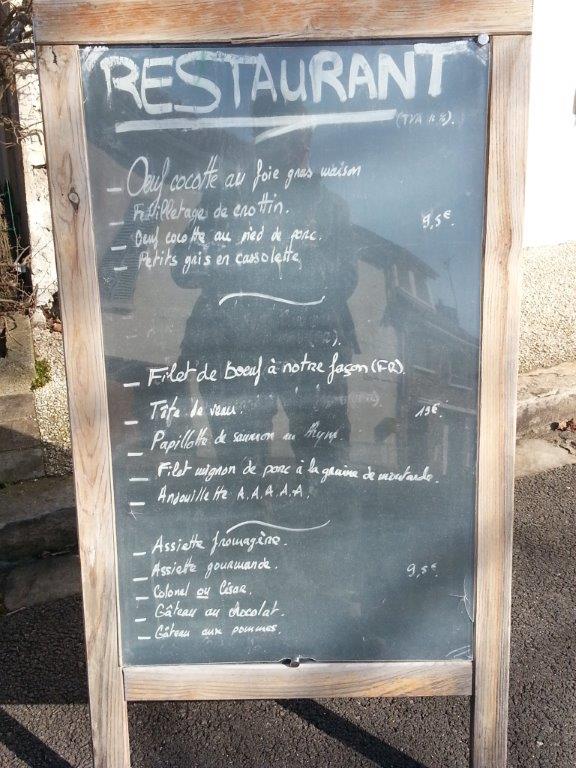 RESTAURANT
- Oeuf cocotte au foie gras maison
- Feuilletage de crottin.
- Oeuf cocotte au pied de porc. 9,5€
- Petits gris en cassolette
- Filet de boeuf à notre façon (FR)
- Tête de veau. 19€
- Papillotte de saumon au thym.
- Filet mignon de porc à la graine de moutarde.
- Andouillette A.A.A.A.A.
- Assiette fromagère.
- Assiette gourmande. 9,5€
- Colonel ou César.
- Gâteau au chocolat.
- Gâteau aux pommes.